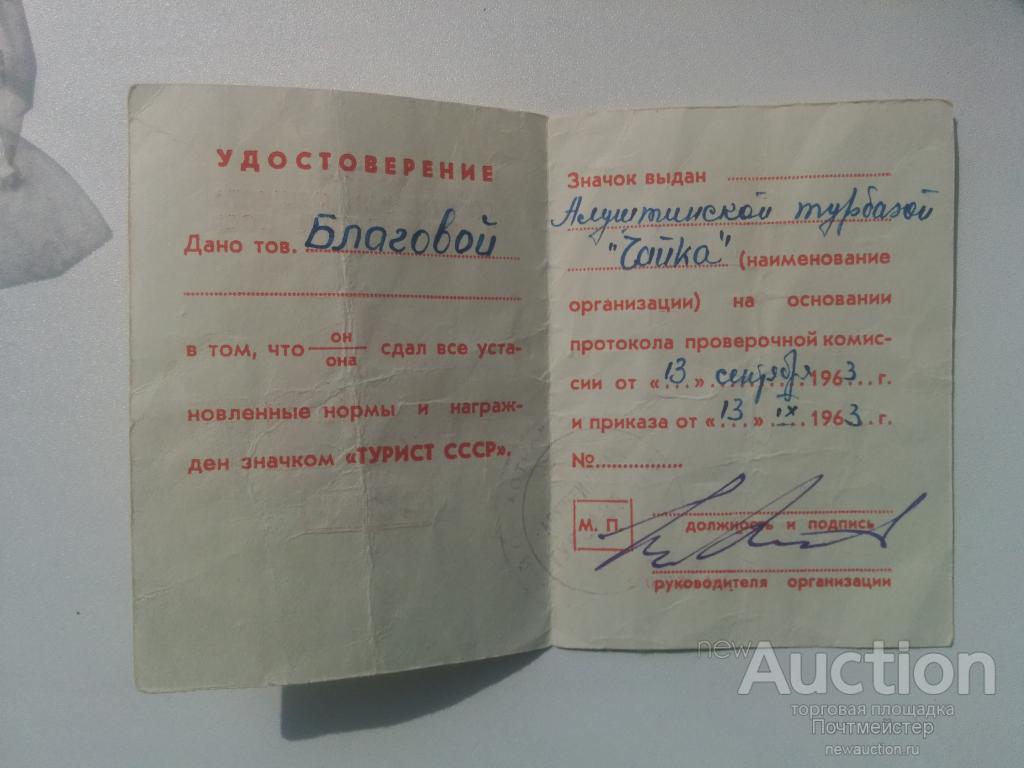 УДОСТОВЕРЕНИЕ
Дано тов. Благовой
в том, что он
она сдал все уста-
новленные нормы и награж-
ден значком «ТУРИСТ СССР».
Значок выдан
Алуштинской турбазой
"Чайка" (наименование
организации) на основании
протокола проверочной комис-
сии от «13» сентября 1963 г.
и приказа от «13» IX 1963 г.
№
М. П.
должность и подпись
руководителя организации
newAuction
торговая площадка
Почтмейстер
newauction.ru